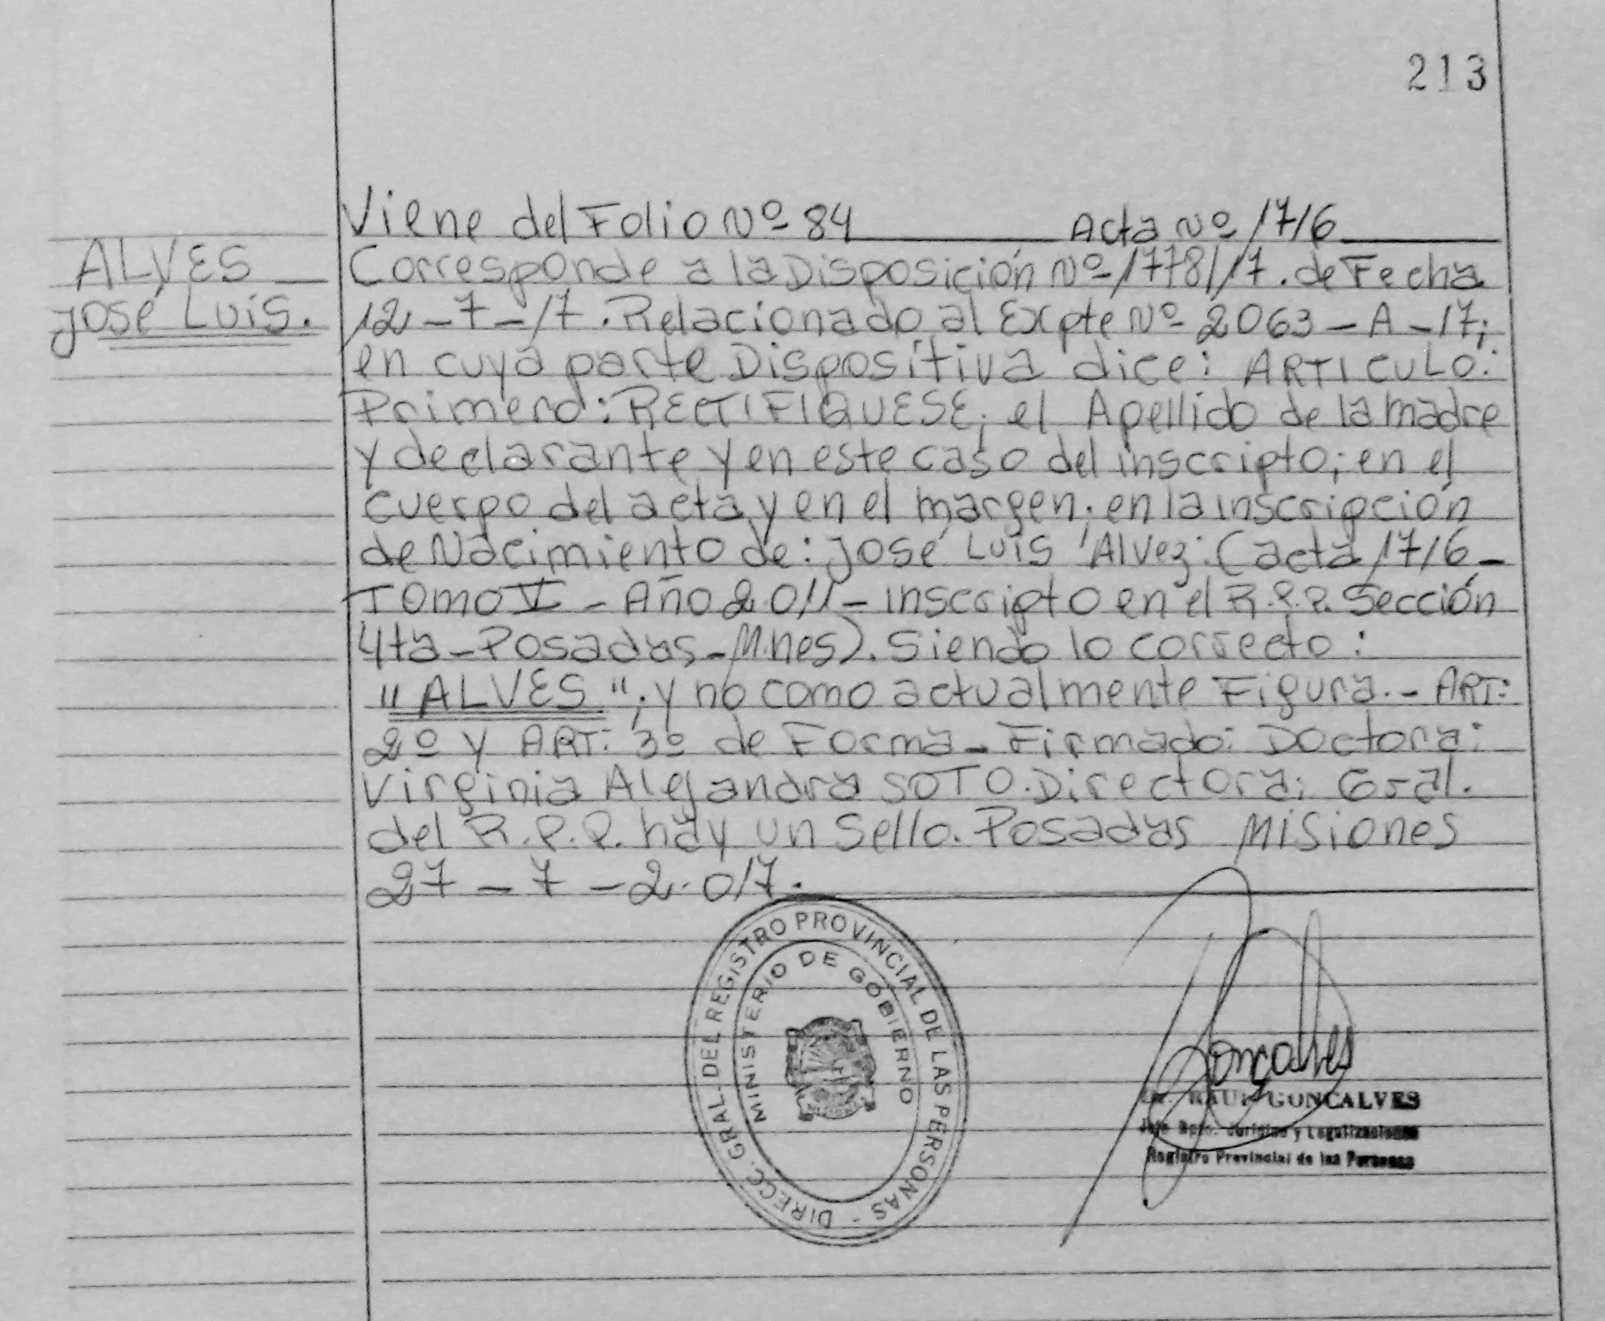 213
Viene del Folio Nº 84 Acta Nº 1716
ALVES
José Luis.
Corresponde a la Disposición Nº 1778/17. de Fecha
12-7-17. Relacionado al Expte Nº 2063-A-17;
en cuya parte Dispositiva dice: ARTICULO:
Primero: RECTIFIQUESE; el Apellido de la madre
y declarante y en este caso del inscripto; en el
cuerpo del acta y en el margen; en la inscripción
de Nacimiento de: José Luis Alvez. (acta 1716-
TOMO V - Año 2.011 - inscripto en el R.P.P. Sección
4ta-Posadas-Mnes). Siendo lo correcto:
"ALVES"; y no como actualmente Figura.- ART:
2º y ART: 3º de Forma - Firmado: Doctora:
Virginia Alejandra SOTO. Directora; Gral.
del R.P.P. hay un Sello. Posadas Misiones
27-7-2.017.
DIRECC. GRAL. DEL REGISTRO PROVINCIAL DE LAS PERSONAS -
MINISTERIO DE GOBIERNO
Gonçalves
Dr. RAUL GONCALVES
Jefe Dpto. Jurídico y Legalizaciones
Registro Provincial de las Personas